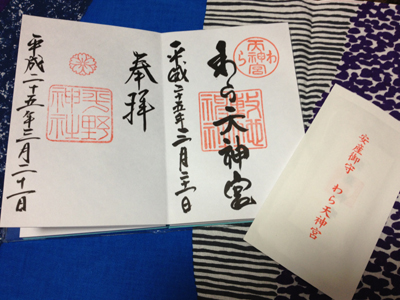 わら天神宮
わら天神宮
敷地神社
平成二十五年三月二十一日
奉拝
平野神社
平成二十五年三月二十一日
安産御守 わら天神宮